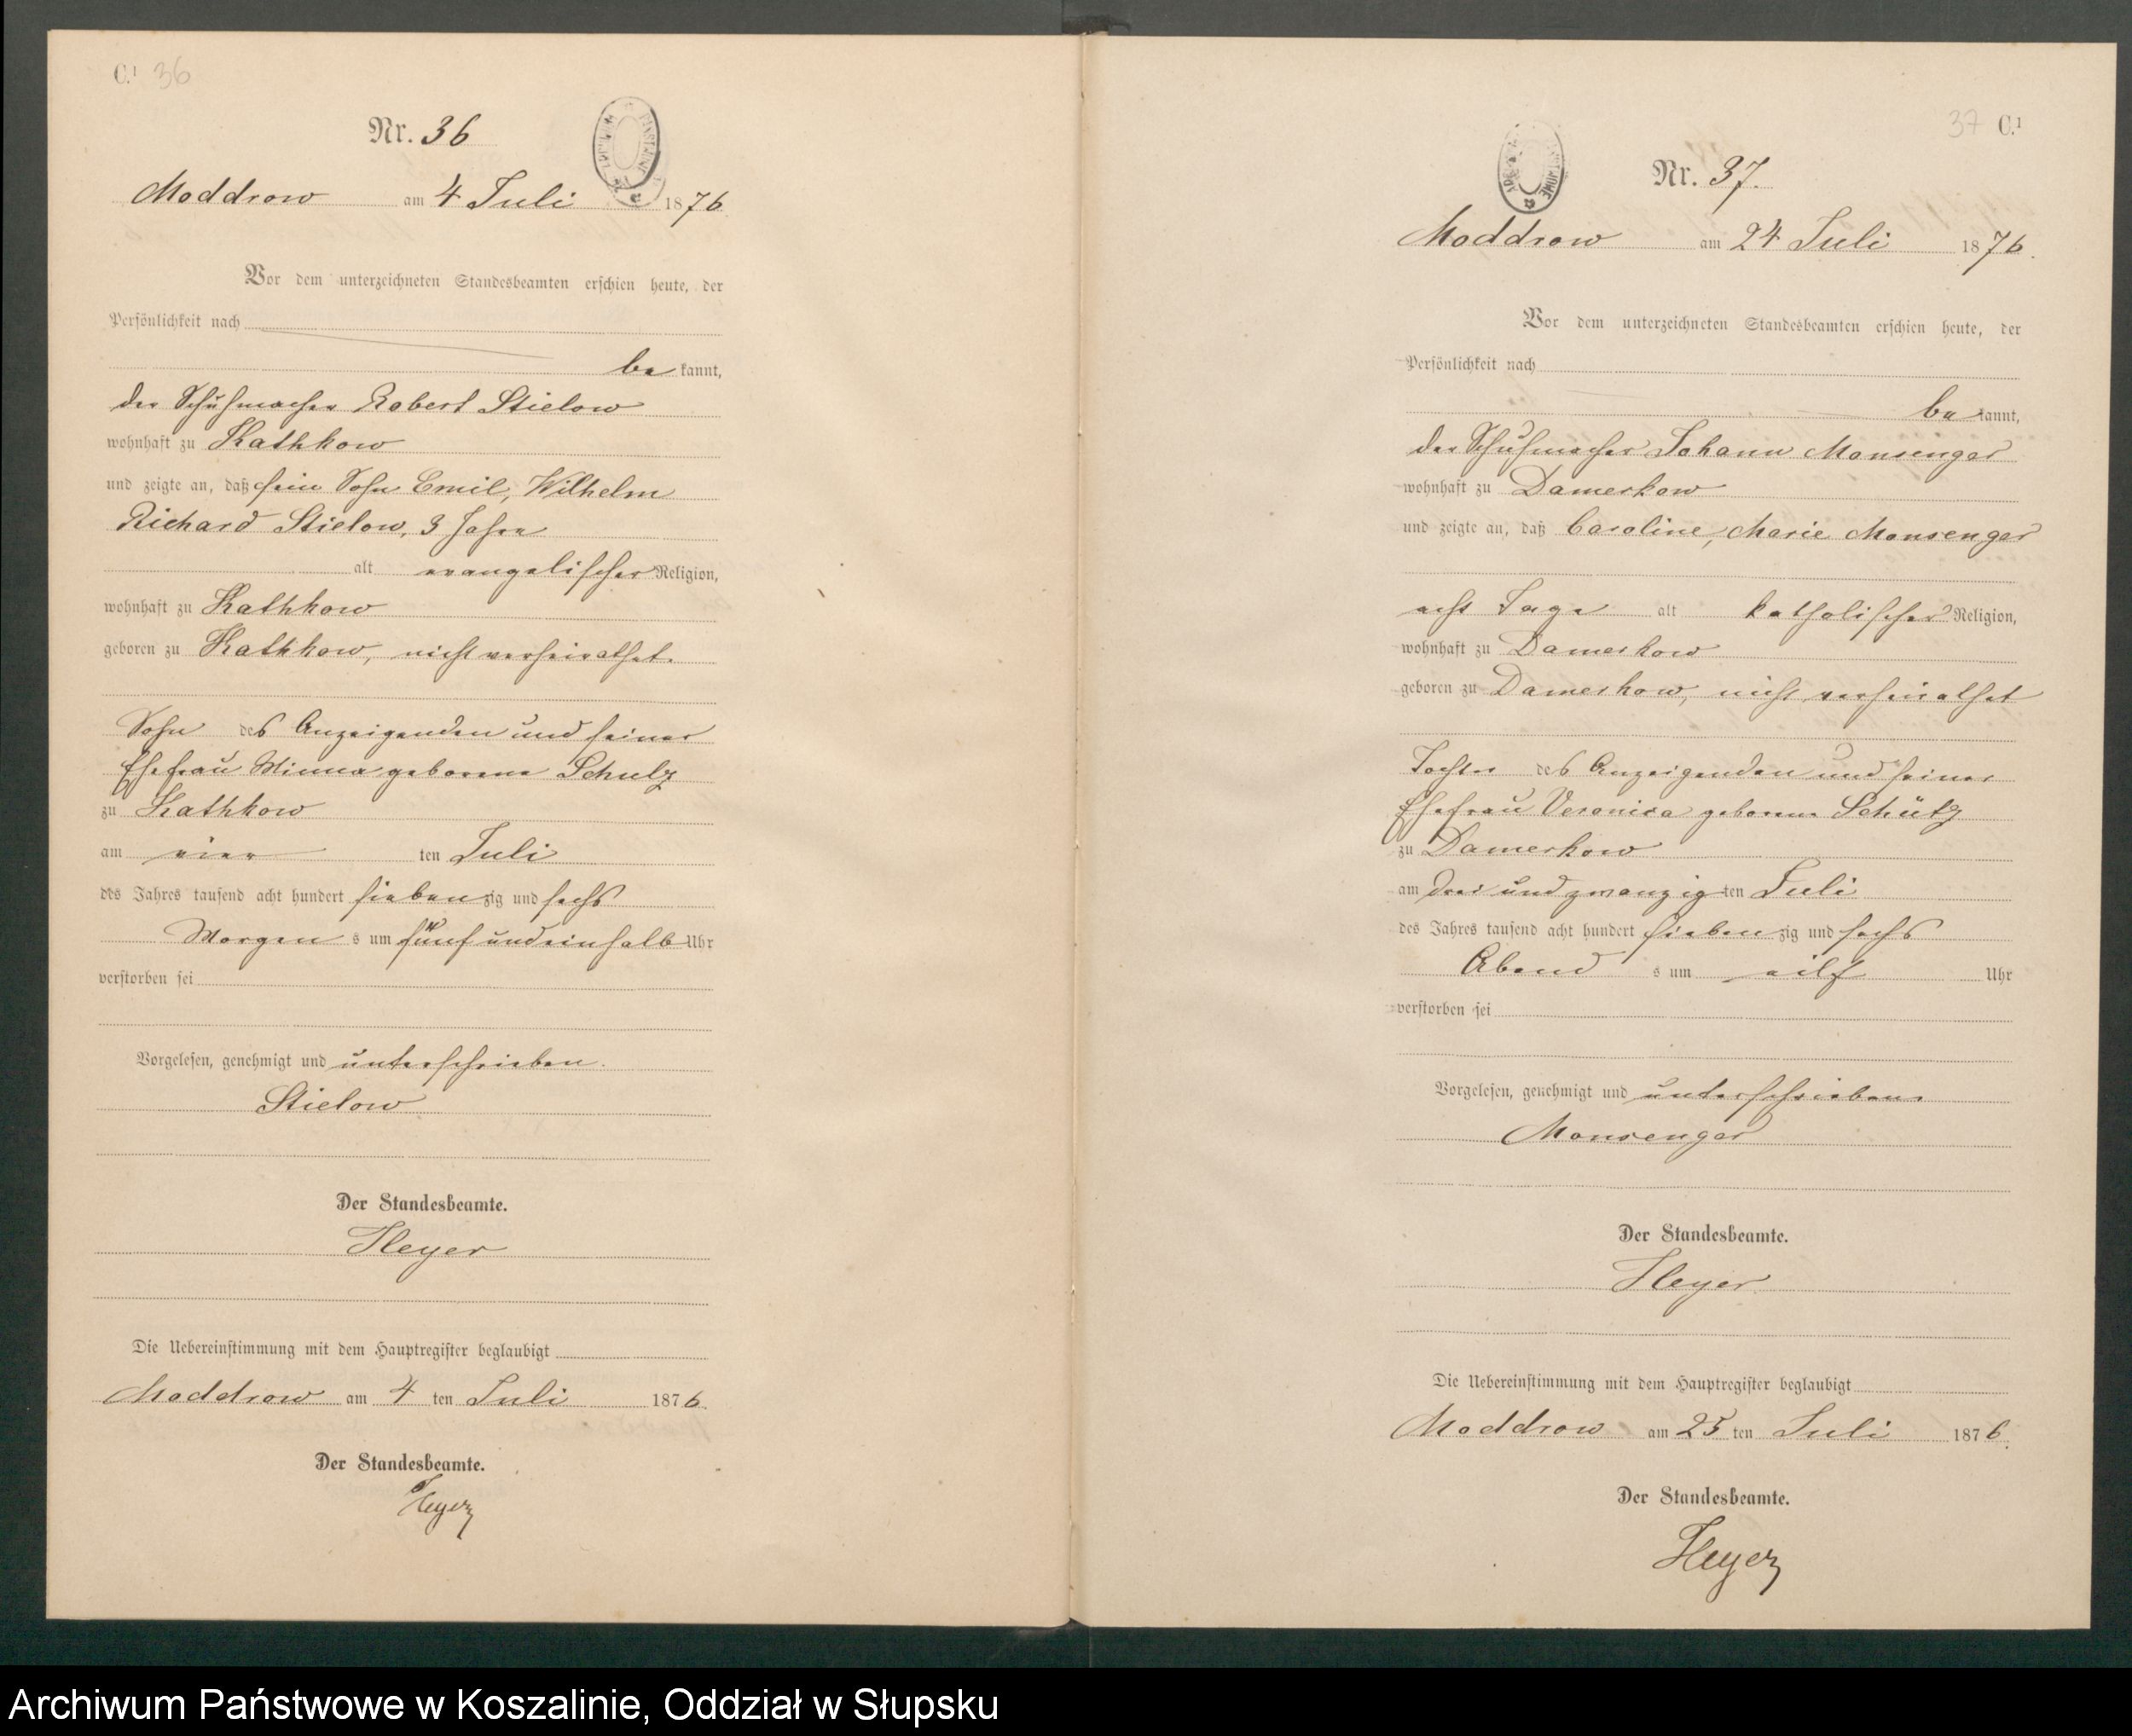 C.¹ 36
Nr. 36
Moddrow am 4 Juli 1876
Vor dem unterzeichneten Standesbeamten erschien heute, der
Persönlichkeit nach
be kannt,
der Schuhmacher Robert Stielow
wohnhaft zu Kathkow
und zeigte an, daß sein Sohn Emil, Wilhelm
Richard Stielow, 3 Jahre
alt evangelischer Religion,
wohnhaft zu Kathkow
geboren zu Kathkow, nicht verheirathet.
Sohn des Anzeigenden und seiner
Ehefrau Minna geborene Schulz
zu Kathkow
am vier ten Juli
des Jahres tausend acht hundert siebenzig und sechs
Morgen s um fünf undeinhalb Uhr
verstorben sei
Vorgelesen, genehmigt und unterschrieben.
Stielow
Der Standesbeamte.
Heyer
Die Uebereinstimmung mit dem Hauptregister beglaubigt
Moddrow am 4 ten Juli 1876.
Der Standesbeamte.
Heyer
37 C.¹
Nr. 37.
Moddrow am 24 Juli 1876.
Vor dem unterzeichneten Standesbeamten erschien heute, der
Persönlichkeit nach
be kannt,
der Schuhmacher Johann Monsenger
wohnhaft zu Damerkow
und zeigte an, daß Caroline, Marie Monsenger
acht Tage alt katholischer Religion,
wohnhaft zu Damerkow
geboren zu Damerkow, nicht verheirathet
Tochter des Anzeigenden und seiner
Ehefrau Veronica geborene Schütz
zu Damerkow
am drei und zwanzig ten Juli
des Jahres tausend acht hundert siebenzig und sechs
Abend s um eilf Uhr
verstorben sei
Vorgelesen, genehmigt und unterschrieben
Monsenger
Der Standesbeamte.
Heyer
Die Uebereinstimmung mit dem Hauptregister beglaubigt
Moddrow am 25 ten Juli 1876.
Der Standesbeamte.
Heyer
Archiwum Państwowe w Koszalinie, Oddział w Słupsku